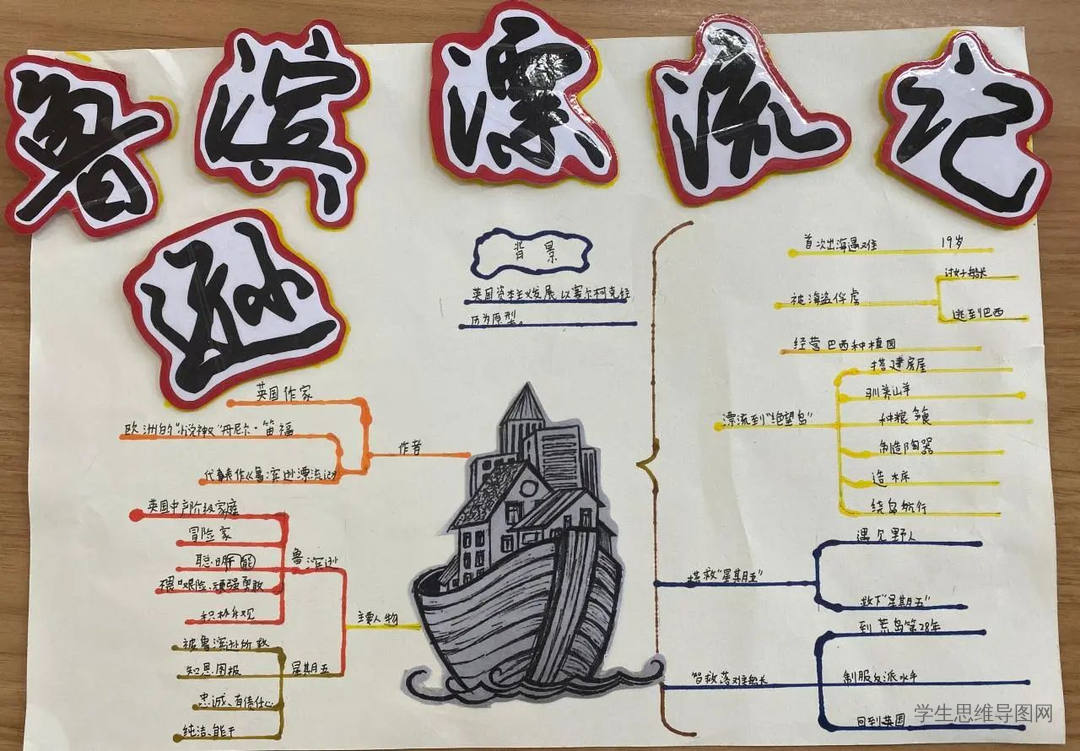 鲁滨漂流记
逊
背景
英国资本主义发展,以塞尔柯克经
历为原型。
作者
英国作家
欧洲的"小说神父"丹尼尔·笛福
代表作《鲁滨逊漂流记》
主要人物
鲁滨逊
英国中产阶级家庭
冒险家
聪明能
艰险、顽强勇敢
积极乐观
星期五
被鲁滨逊所救
知恩图报
忠诚、有责任心
纯洁、能干
首次出海遇难 19岁
被海盗俘虏
讨好船长
逃到巴西
经营巴西种植园
漂流到"绝望岛"
搭建房屋
驯养山羊
种粮食
制造陶器
造木床
绕岛航行
拯救"星期五"
遇见野人
救下"星期五"
智救落难船长
到荒岛第28年
制服反派水手
回到英国
学生思维导图网